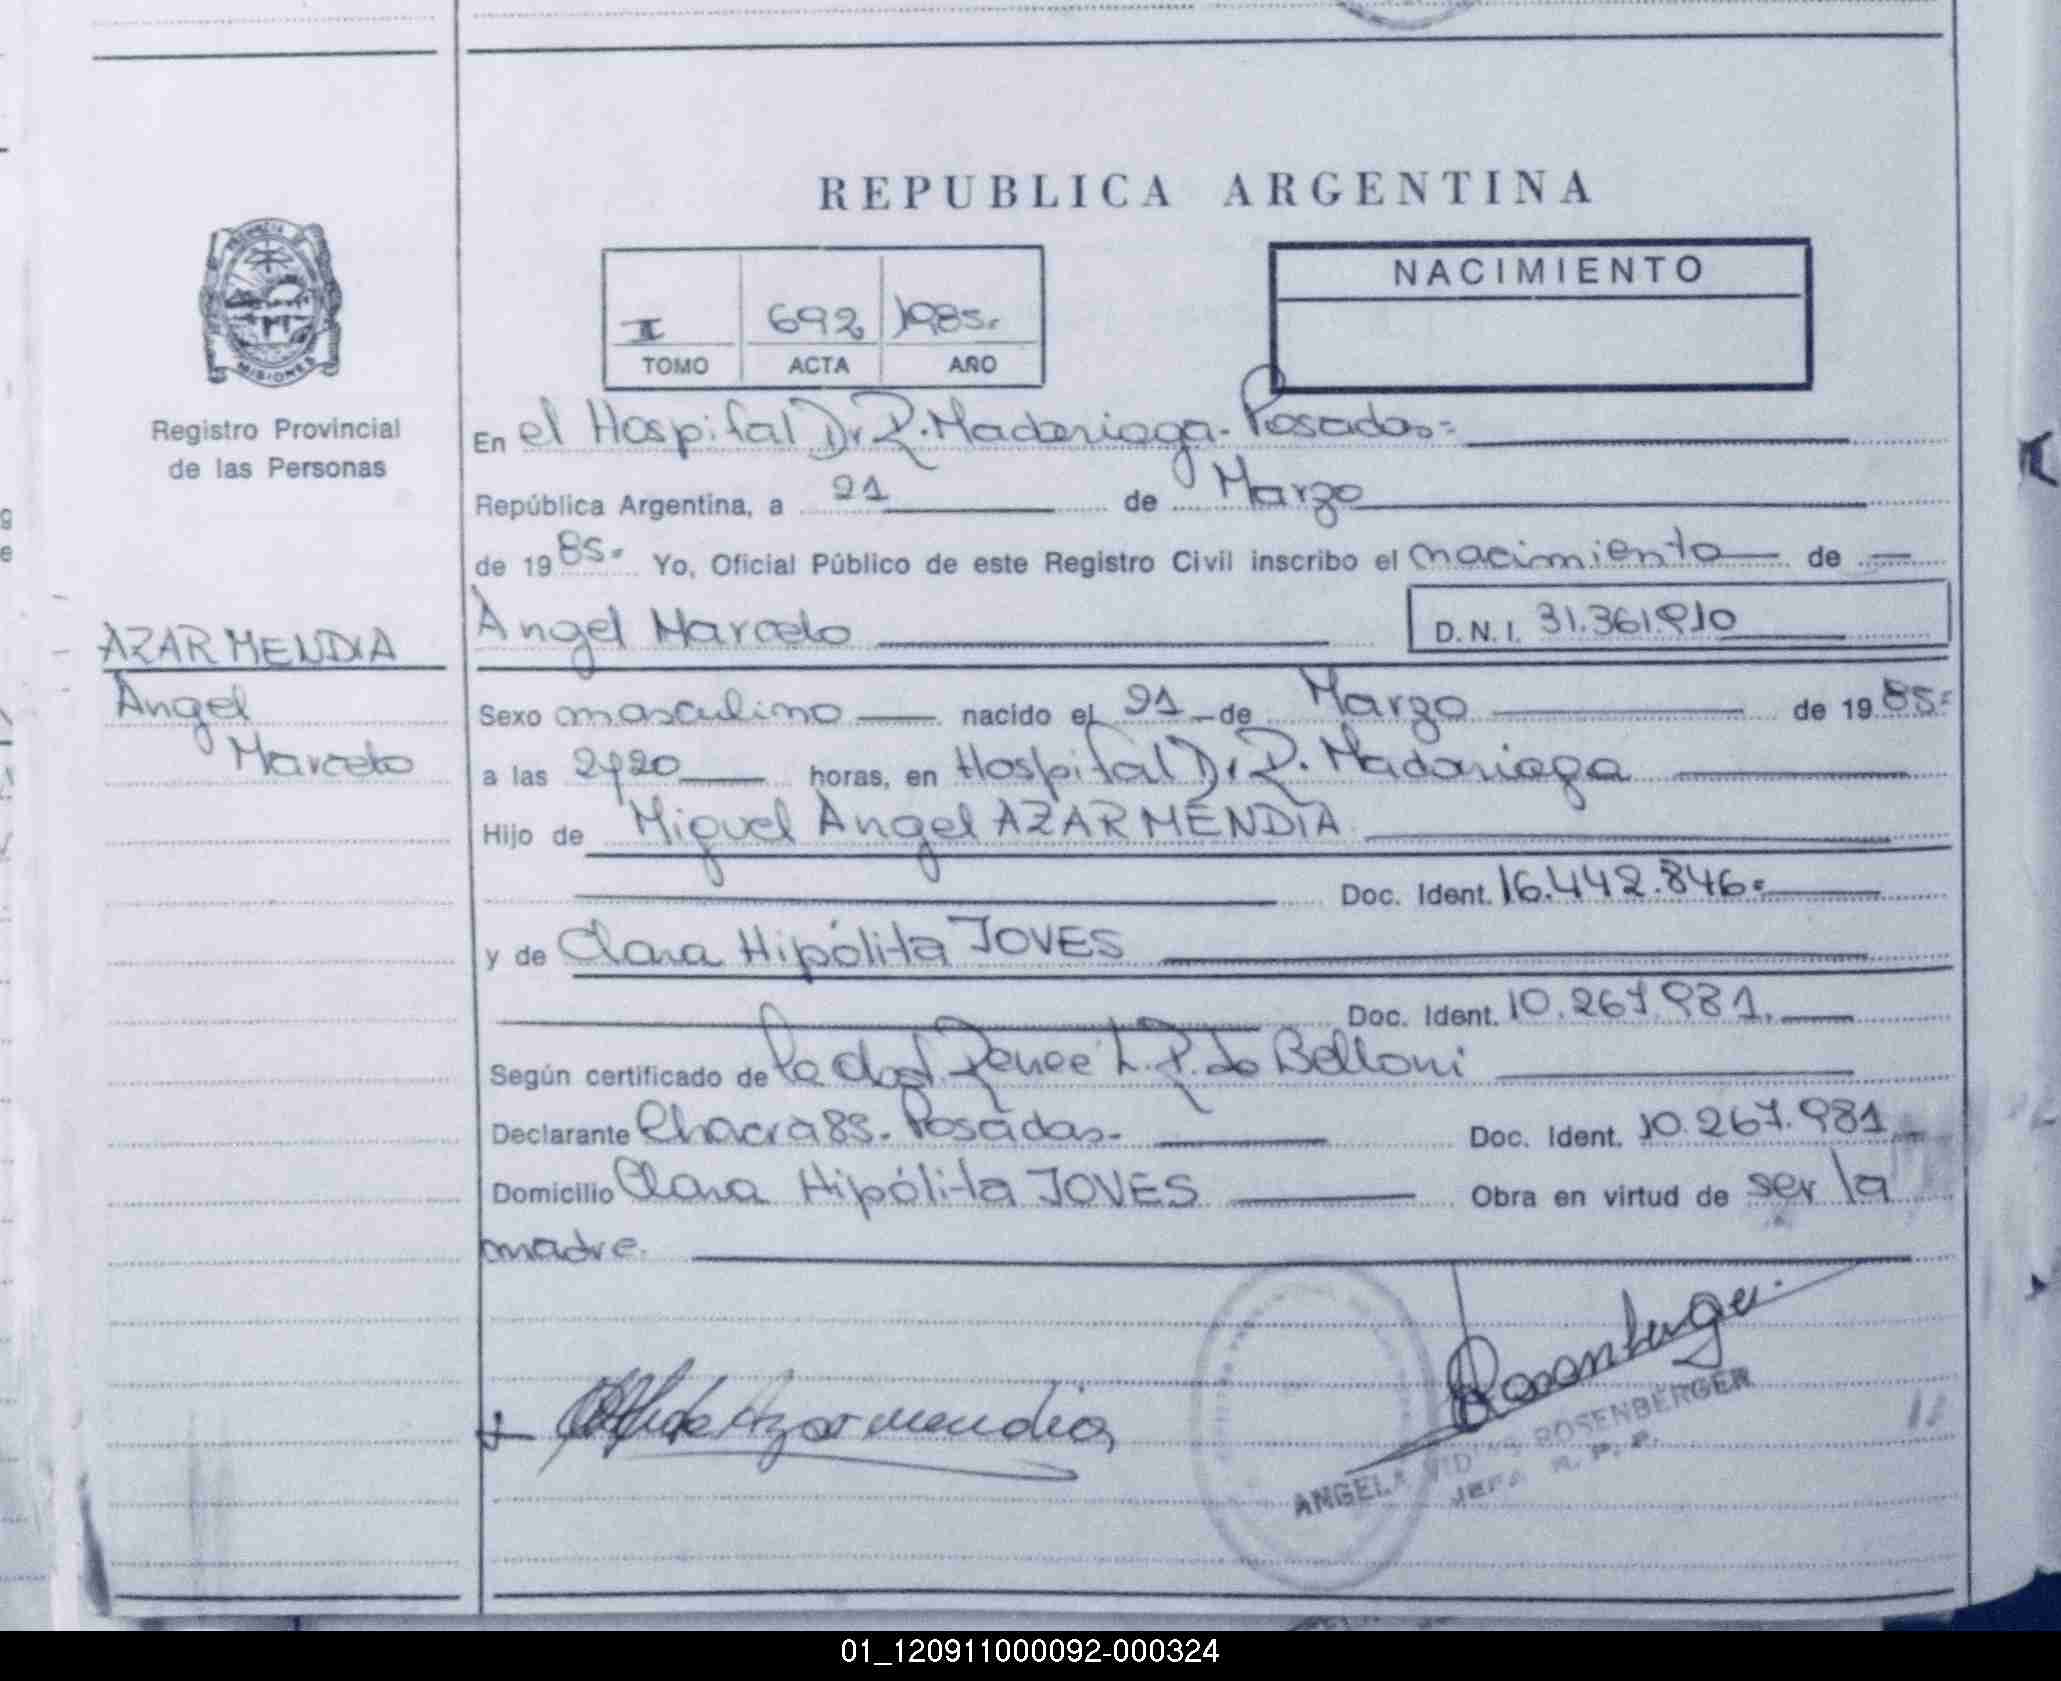 REPUBLICA ARGENTINA
PROVINCIA DE
MISIONES
Registro Provincial
de las Personas
I 692 1985.-
TOMO ACTA AÑO
NACIMIENTO
En el Hospital Dr R. Madariaga - Posadas =
República Argentina, a 21 de Marzo
de 1985.- Yo, Oficial Público de este Registro Civil inscribo el nacimiento de
Angel Marcelo D.N.I. 31.361.910
AZARMENDIA
Angel
Marcelo
Sexo masculino nacido el 21 de Marzo de 1985.=
a las horas, en Hospital Dr R. Madariaga
Hijo de Miguel Angel AZARMENDIA
Doc. Ident. 16.442.846.=
y de Clara Hipólita JOVES
Doc. Ident. 10.267.981.
Según certificado de la dra. Renee L. R. de Belloni
Declarante Chacra 85. Posadas.- Doc. Ident. 10.267.981
Domicilio Clara Hipólita JOVES Obra en virtud de ser la
madre.
Azarmendia
Rosenberger
ANGELA ROSENBERGER
JEFA R. P. P.
01_120911000092-000324